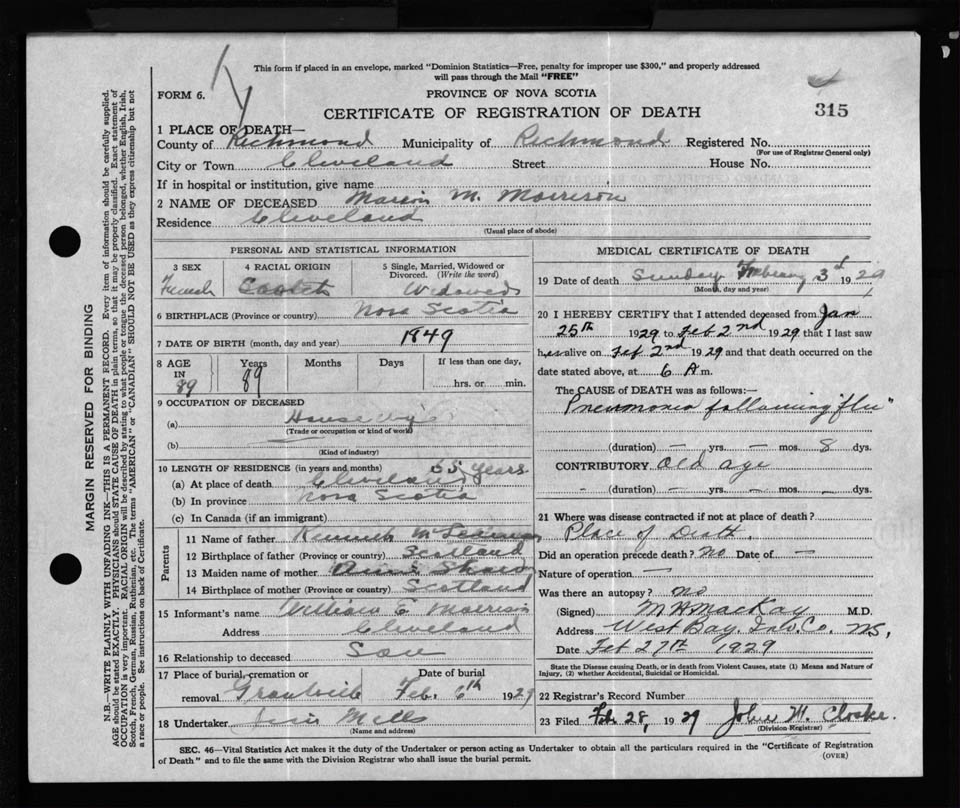 This form if placed in an envelope, marked "Dominion Statistics—Free, penalty for improper use $300," and properly addressed
will pass through the Mail "FREE"
FORM 6.
PROVINCE OF NOVA SCOTIA
CERTIFICATE OF REGISTRATION OF DEATH
315
1 PLACE OF DEATH—
County of Richmond Municipality of Richmond Registered No.
(For use of Registrar General only)
City or Town Cleveland Street House No.
If in hospital or institution, give name
2 NAME OF DECEASED Marion M. Morrison
Residence Cleveland
(Usual place of abode)
PERSONAL AND STATISTICAL INFORMATION
3 SEX 4 RACIAL ORIGIN 5 Single, Married, Widowed or Divorced. (Write the word)
Female Scotch Widowed
6 BIRTHPLACE (Province or country) Nova Scotia
7 DATE OF BIRTH (month, day and year) 1849
8 AGE IN Years Months Days If less than one day,
89 89 hrs. or min.
9 OCCUPATION OF DECEASED
(a)
(Trade or occupation or kind of work)
(b)
(Kind of industry)
10 LENGTH OF RESIDENCE (in years and months) 55 years
(a) At place of death Cleveland
(b) In province Nova Scotia
(c) In Canada (if an immigrant)
Parents
11 Name of father Kenneth
12 Birthplace of father (Province or country) Scotland
13 Maiden name of mother Annie Shaw
14 Birthplace of mother (Province or country) Scotland
15 Informant's name William C Morrison
Address Cleveland
16 Relationship to deceased Son
17 Place of burial, cremation or removal Date of burial
Granville Feb. 6th 1929
18 Undertaker Mills
(Name and address)
MEDICAL CERTIFICATE OF DEATH
19 Date of death Sunday February 3d 1929
(Month, day and year)
20 I HEREBY CERTIFY that I attended deceased from Jan
25th 1929 to Feb 2nd 1929 that I last saw
her alive on Feb 2nd 1929 and that death occurred on the
date stated above, at 6 A m.
The CAUSE OF DEATH was as follows:—
Pneumonia following "flu"
(duration) — yrs. — mos. 8 dys.
CONTRIBUTORY Old age
(duration) — yrs. — mos. — dys.
21 Where was disease contracted if not at place of death?
Place of Death.
Did an operation precede death? No Date of —
Nature of operation —
Was there an autopsy? no
(Signed) M A MacKay M.D.
Address West Bay. Inv Co. NS.
Date Feb 27th 1929
State the Disease causing Death, or in death from Violent Causes, state (1) Means and Nature of
Injury, (2) whether Accidental, Suicidal or Homicidal.
22 Registrar's Record Number
23 Filed Feb 28, 1929 John M.
(Division Registrar)
SEC. 46—Vital Statistics Act makes it the duty of the Undertaker or person acting as Undertaker to obtain all the particulars required in the "Certificate of Registration
of Death" and to file the same with the Division Registrar who shall issue the burial permit.
(OVER)
MARGIN RESERVED FOR BINDING
N.B.—WRITE PLAINLY WITH UNFADING INK—THIS IS A PERMANENT RECORD. Every item of information should be carefully supplied.
AGE should be stated EXACTLY. PHYSICIANS should STATE CAUSE OF DEATH in plain terms, so that it may be properly classified. Exact statement of
OCCUPATION is very important. RACIAL ORIGIN will be described by stating to what people or tongue the deceased person belonged, whether English, Irish,
Scotch, French, German, Russian, Ruthenian, etc. The terms "AMERICAN" or "CANADIAN" SHOULD NOT BE USED as they express citizenship but not
a race or people. See instructions on back of Certificate.